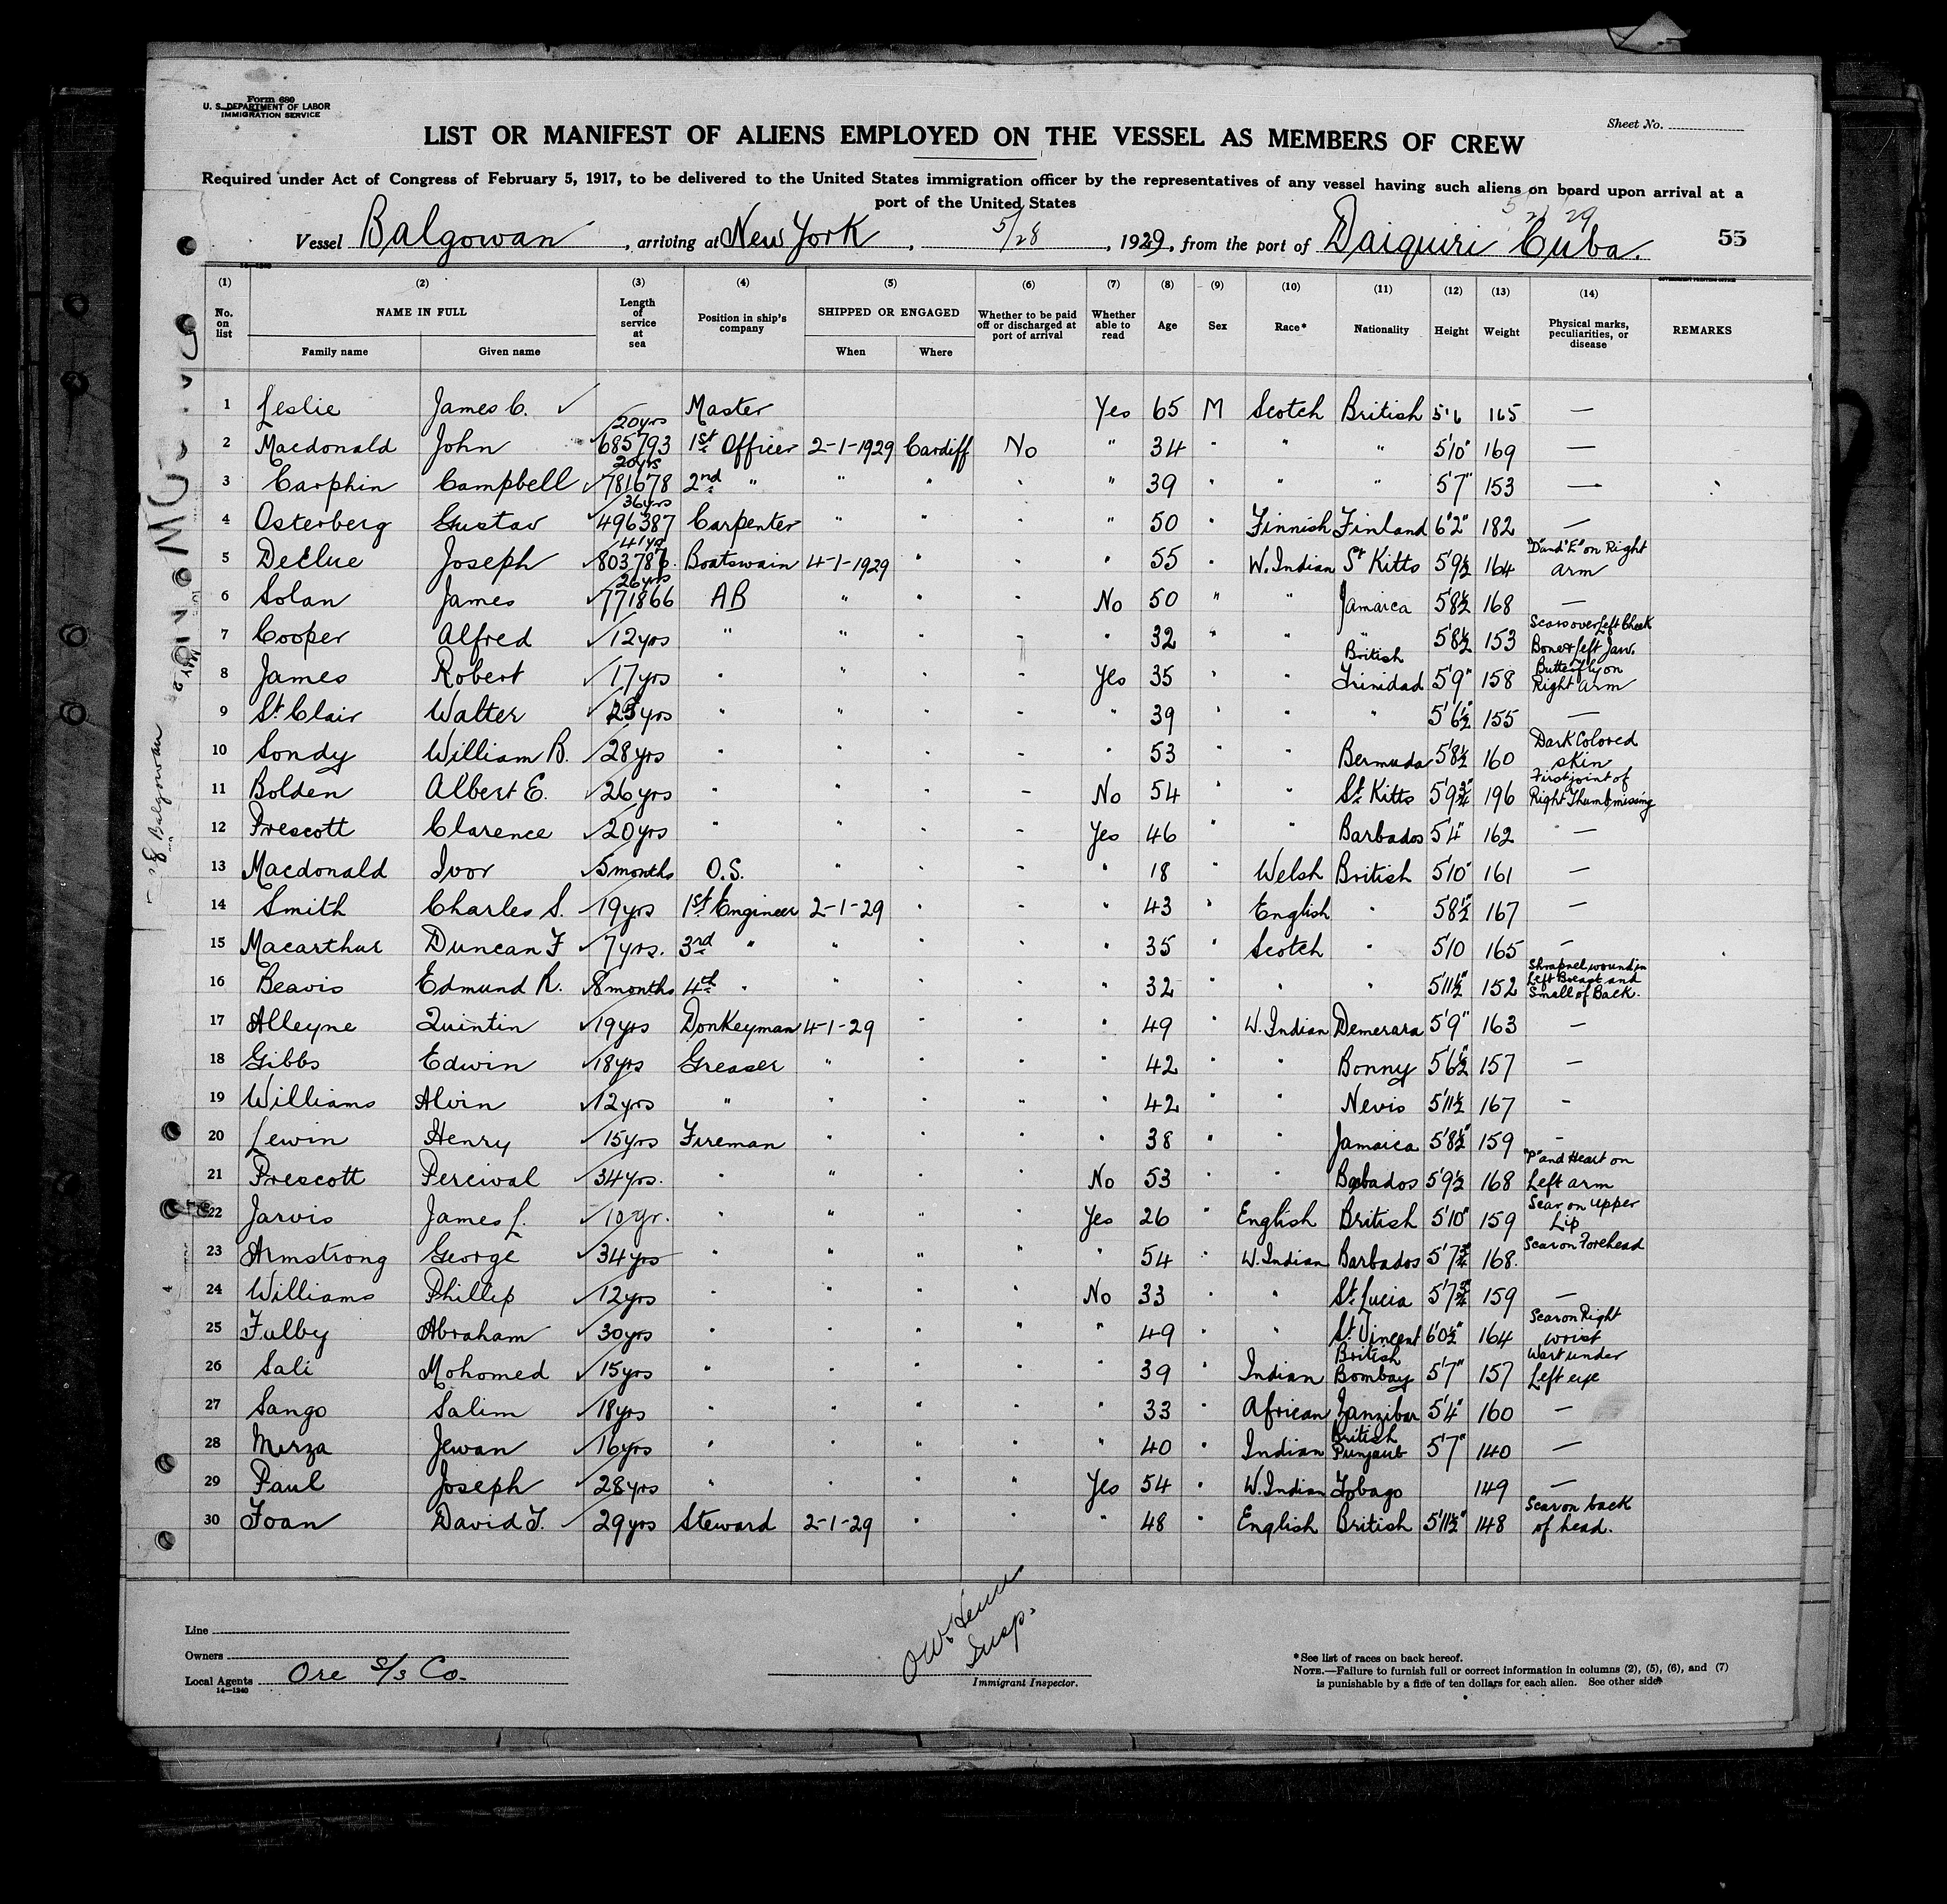 Form 680
U. S. DEPARTMENT OF LABOR
IMMIGRATION SERVICE
Sheet No.
LIST OR MANIFEST OF ALIENS EMPLOYED ON THE VESSEL AS MEMBERS OF CREW
Required under Act of Congress of February 5, 1917, to be delivered to the United States immigration officer by the representatives of any vessel having such aliens on board upon arrival at a
port of the United States
Vessel Balgowan, arriving at New York, 5/28, 1929, from the port of Daiquiri Cuba. 55
(1) (2) (3) (4) (5) (6) (7) (8) (9) (10) (11) (12) (13) (14)
No. on list NAME IN FULL Family name Given name Length of service at sea Position in ship's company SHIPPED OR ENGAGED When Where Whether to be paid off or discharged at port of arrival Whether able to read Age Sex Race* Nationality Height Weight Physical marks, peculiarities, or disease REMARKS
1 Leslie James C. ✓ Master Yes 65 M Scotch British 5'6 165 —
2 Macdonald John 20yrs 685793 1st Officer 2-1-1929 Cardiff No " 34 " " " 5'10" 169 —
3 Carphin Campbell ✓ 20yrs 781678 2nd " " " " " 39 " " " 5'7" 153 —
4 Osterberg Gustav ✓ 36yrs 496387 Carpenter " " " " 50 " Finnish Finland 6'2" 182 —
5 DeClue Joseph ✓ 41yrs 803787. Boatswain 4-1-1929 " " " 55 " W. Indian St Kitts 5'9½ 164 "D" and "E" on Right arm
6 Solan James ✓ 26yrs 771866 AB " " " No 50 " " Jamaica 5'8½ 168 —
7 Cooper Alfred ✓ 12yrs " " " - " 32 " " " 5'8½ 153 Scars over Left Cheek Bone & left Jaw.
8 James Robert ✓ 17yrs " " " - Yes 35 " " British Trinidad 5'9" 158 Butterfly on Right arm
9 St Clair Walter ✓ 25yrs " " " - " 39 " " " 5'6½ 155 —
10 Sondy William B. ✓ 28yrs " " " - " 53 " " Bermuda 5'8½ 160 Dark Colored skin
11 Bolden Albert E. ✓ 26yrs " " " - No 54 " " St. Kitts 5'9¾ 196 First joint of Right Thumb missing
12 Prescott Clarence ✓ 20yrs " " " - Yes 46 " " Barbados 5'4" 162 —
13 Macdonald Ivor 5 months O.S. " " - " 18 " Welsh British 5'10" 161 —
14 Smith Charles S. ✓ 19yrs 1st Engineer 2-1-29 " " " 43 " English " 5'8½" 167 —
15 Macarthur Duncan F ✓ 7yrs. 3rd " " " " " 35 " Scotch " 5'10 165 —
16 Beavis Edmund R. 8 months 4th " " " " " 32 " " " 5'11½" 152 Shrapnel wound in Left Breast and Small of Back.
17 Alleyne Quintin ✓ 19yrs Donkeyman 4-1-29 " " " 49 " W. Indian Demerara 5'9" 163 —
18 Gibbs Edwin ✓ 18yrs Greaser " " " " 42 " " Bonny 5'6½ 157 —
19 Williams Alvin ✓ 12yrs " " " " " 42 " " Nevis 5'11½ 167 -
20 Lewin Henry ✓ 15yrs Fireman " " " " 38 " " Jamaica 5'8½" 159 —
21 Prescott Percival ✓ 34yrs. " " " " No 53 " " Barbados 5'9½ 168 "P" and Heart on Left arm
22 Jarvis James L. ✓ 10yr. " " " " Yes 26 " English British 5'10" 159 Scar on Upper Lip
23 Armstrong George ✓ 34yrs " " " " " 54 " W. Indian Barbados 5'7¾ 168. Scar on Forehead
24 Williams Phillip ✓ 12yrs " " " " No 33 " " St. Lucia 5'7¾ 159 —
25 Fulby Abraham ✓ 30yrs " " " " " 49 " " St. Vincent 6'0½" 164 Scar on Right wrist
26 Sali Mohomed ✓ 15yrs " " " " " 39 " Indian British Bombay 5'7" 157 Wart under Left eye
27 Sango Salim ✓ 18yrs " " " " " 33 " African Zanzibar 5'4" 160 —
28 Mirza Jewan ✓ 16yrs " " " " " 40 " Indian British Punjaub 5'7" 140 —
29 Paul Joseph ✓ 28yrs " " " " Yes 54 " W. Indian Tobago 149 —
30 Foan David T. 29yrs Steward 2-1-29 " " " 48 " English British 5'11½" 148 Scar on back of head.
SS Balgowan
Line
Owners
Local Agents Ore S/S Co.
14—1240
Insp.
Immigrant Inspector.
*See list of races on back hereof.
NOTE.—Failure to furnish full or correct information in columns (2), (5), (6), and (7)
is punishable by a fine of ten dollars for each alien. See other side.